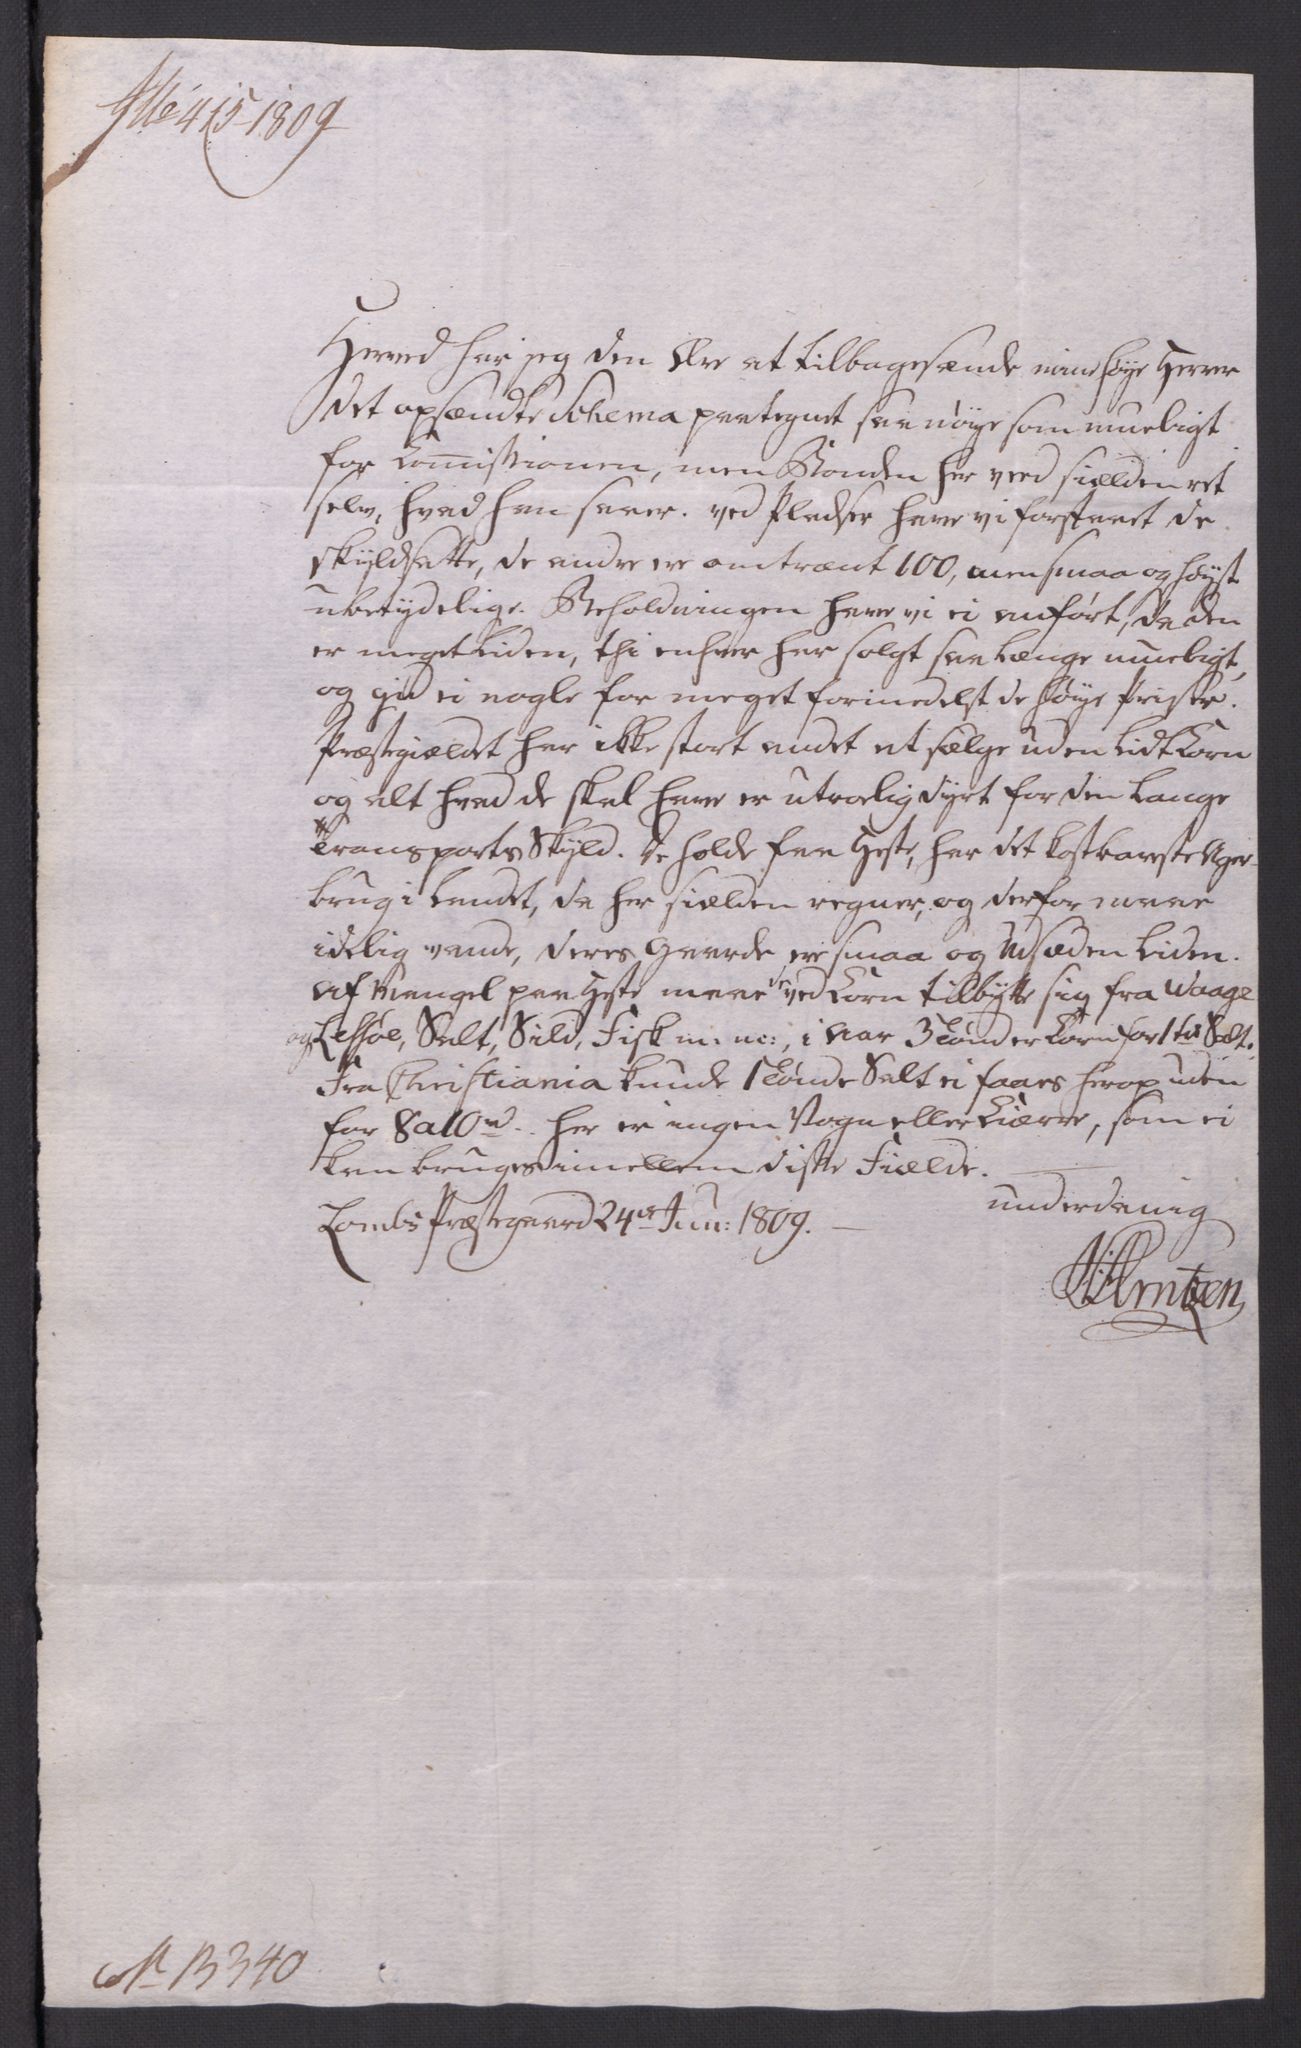 415-1809
Herved har jeg den Ære at tilbagesænde mine høye Herrer
det opsændte Schema paategnet saa nöye som mueligt
for Commissionen, men Bonden her veed sielden ret
selv, hvad han saaer. ved Pladser have vi forstaaet de
skyldsatte, de andre ere omtrænt 100, men smaa og höyst
ubetydelige. Beholdningen have vi ei anfört, da den
er meget liden, thi enhver har solgt saa længe mueligt,
og gid ei nogle for meget formedelst de höye Priser.
Præstegieldet har ikke stort andet at sælge uden lidt Korn
og alt hvad de skal have er utroelig dyrt for den lange
Transports Skyld. De holde faa Heste, har det kostbareste Ager-
brug i Landet, da her sielden regner, og derfor maae
idelig vande, deres Gaarde ere smaa og Udsæden liden.
Af Mangel paa Heste maae de ved Korn tilbytte sig fra Waage
og Lessöe, Salt, Sild, Fisk m. m:, i Aar 3 Tönder Korn for 1 td Salt.
Fra Christiania kunde 1 Tönde Salt ei faaes herop uden
for 8 a 10 rd. her er ingen Vogn eller Kiærre, som ei
kan bruges imellem disse Fielde.
underdanig
Lombs Præstegaard 24de Jun: 1809.
Arntzen
No B 340